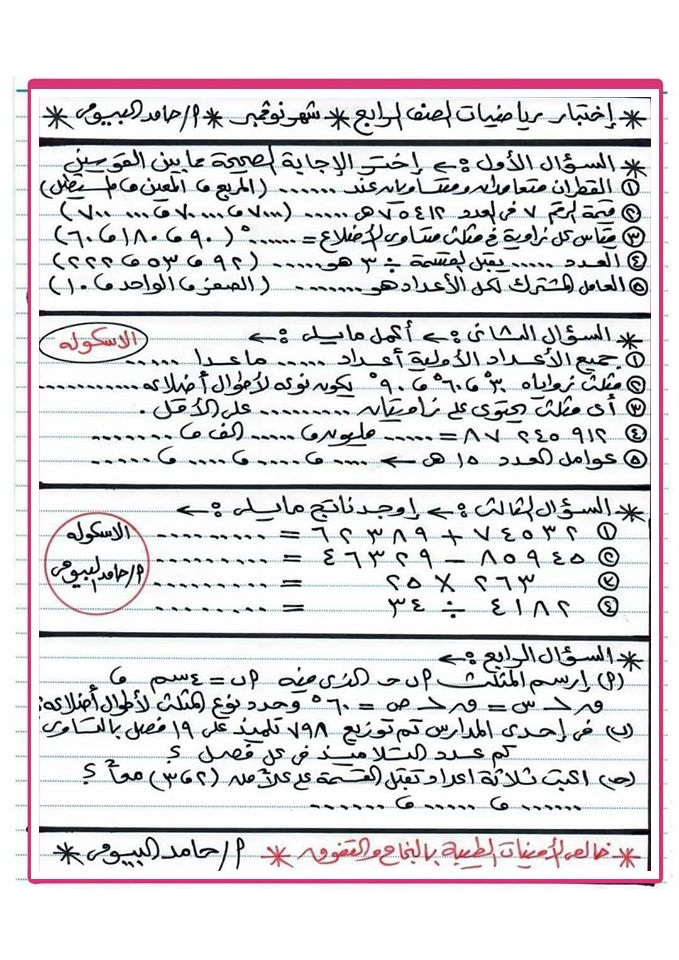 * إختبار رياضيات الصف الرابع * شهر نوفمبر * م/ حامد البيومى *
* السؤال الأول :- إختر الإجابة الصحيحة مما بين القوسين
① القطران متعامدان ومتساويان عند ...... (المربع , المعين , المستطيل)
② قيمة الرقم ٧ فى العدد ٧٥٤١٢ هى ..... (٧٠٠٠ , ٧٠٠٠٠ , ٧٠٠)
③ مقياس كل زاوية فى مثلث متساوى الأضلاع = ......° (٩٠ , ١٨٠ , ٦٠)
④ العدد ..... يقبل القسمة ÷ ٣ هو ..... (٩٢ , ٥٣ , ٢٢٢)
⑤ العامل المشترك لكل الأعداد هو ....... (الصفر , الواحد , ١٠)
* السؤال الثانى :- أكمل مايلى :-
الاسكوله
① جميع الأعداد الأولية أعداد ..... ماعدا ......
② مثلث زواياه ٣٠° , ٦٠° , ٩٠° يكون نوعه لأطوال أضلاعه ...........
③ أى مثلث يحتوى على زاويتان ......... على الأقل .
④ ٨٧ ٢٤٥ ٩١٢ = ..... مليون , ..... الف , .......
⑤ عوامل العدد ١٥ هى ← .... , .... , .... , ......
* السؤال الثالث :- إوجد ناتج مايلى :-
① ٧٤٥٣٢ + ٦٢٣٨٩ = ..........
② ٨٥٩٤٥ – ٤٦٣٢٩ = ..........
③ ٢٦٣ × ٢٥ = ..........
④ ٤١٨٢ ÷ ٣٤ = ..........
الاسكوله
م/ حامد البيومى
* السؤال الرابع :-
(م) إرسم المثلث م ب حـ الذى فيه م ب = ٤ سم ,
ق< س = ق< ص = ٦٠° وحدد نوع المثلث لأطوال أضلاعه؟
(ب) فى إحدى المدارس تم توزيع ٧٩٨ تلميذ على ١٩ فصل بالتساوى
كم عدد التلاميذ فى كل فصل ؟
(حـ) اكتب ثلاثة اعداد تقبل القسمة على كلاً من (٢ , ٣) معاً ؟
...... , ...... , ......
* خالص الأمنيات الطيبة بالنجاح والتفوق * م/ حامد البيومى *